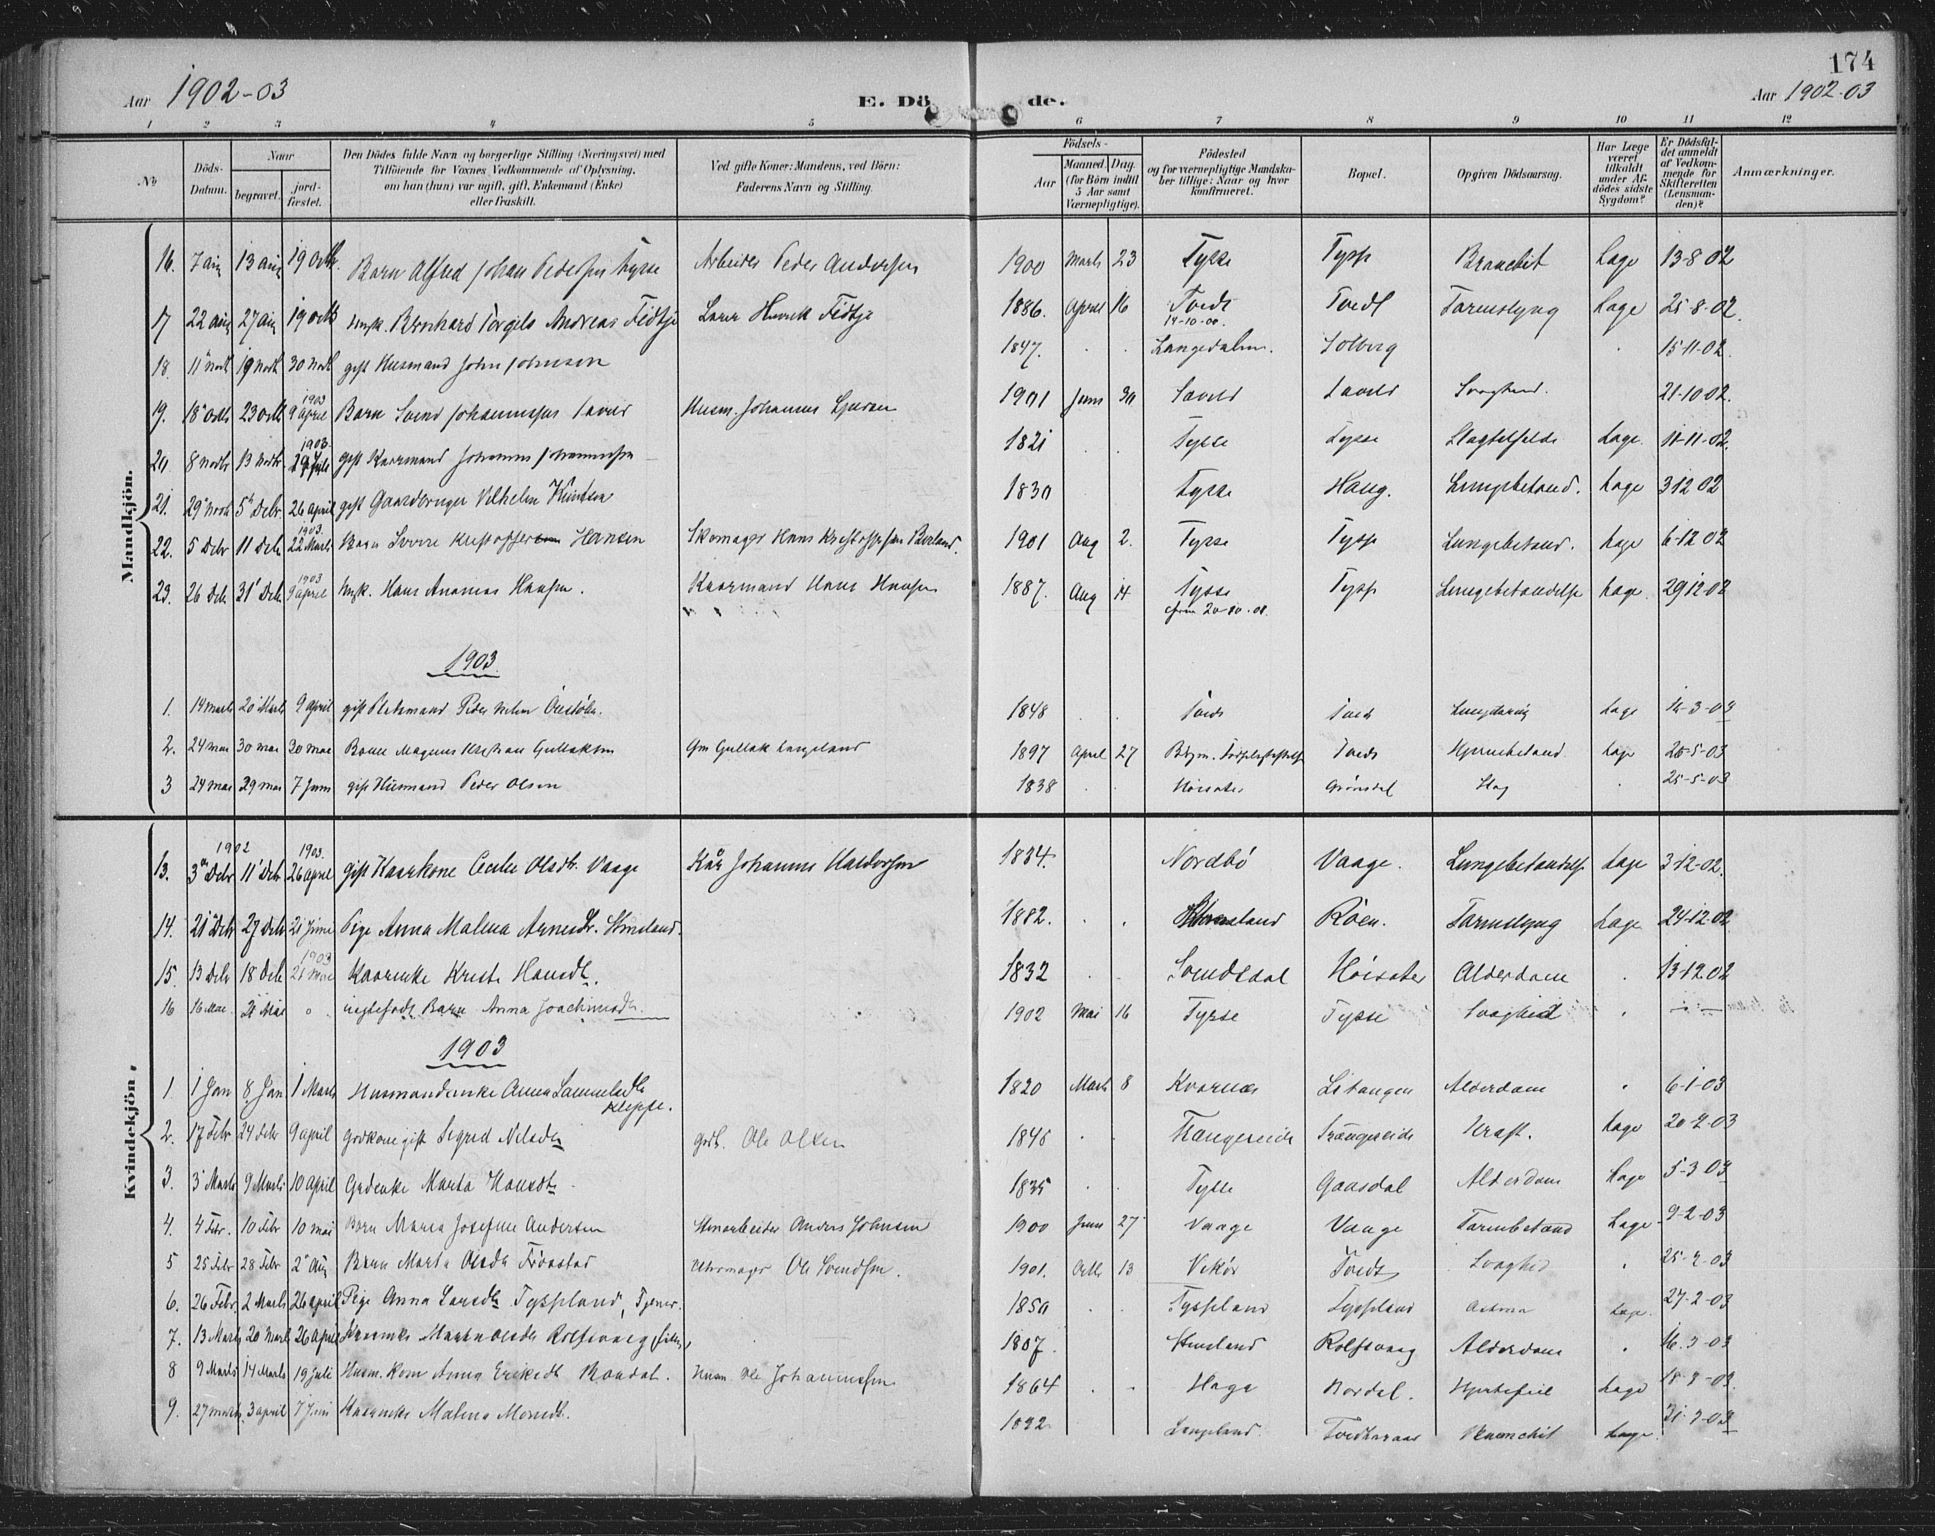 174
Aar 1902-03
E. Dö de.
Aar 1902-03
1 2 3 4 5 6 7 8 9 10 11 12
No
Döds-Datum.
Naar
begravet.
jord-fæstet.
Den Dödes fulde Navn og borgerlige Stilling (Næringsvei) med
Tilföiende for Voxnes Vedkommende af Oplysning,
om han (hun) var ugift, gift, Enkemand (Enke)
eller fraskilt.
Ved gifte Koner: Mandens, ved Börn:
Faderens Navn og Stilling.
Födsels-
Aar
Maaned. Dag.
(for Börn indtil
5 Aar samt
Værnepligtige).
Födested
og for værnepligtige Mandska-
ber tillige: Naar og hvor
konfirmeret.
Bopæl.
Opgiven Dödsaarsag.
Har Læge
været
tilkaldt
under Af-
dödes sidste
Sygdom?
Er Dödsfal-
det anmeldt
af Vedkom-
mende for
Skifteretten
(Lensman-
den)?
Anmærkninger.
Mandkjön.
16. 7 aug 13 aug 19 octb. Barn Alfred Johan Pedersen Tysse Arbeider Peder Andersen 1900 Marts 23 Tysse Tysse Bronchit Læge 13-8-02
17 22 aug 27 aug 19 octb Ungk. Bernhard Torgils Andreas Fidtje Lærer Henrik Fidtje 1886. April 16 Tvedt 14-10-00. Tvedt Tarmslyng Læge 25-8-02.
18. 11 novb 19 novb 30 novb gift Husmand John Johnsen 1847. Solberg 15-11-02.
19. 18 octb 23 octb 1903 9 april Barn Svend Johannessen Husm. Johannes 1901 Juni 30 Svaghed. 21-10-02.
20. 8 novb 13 novb 1903 Juli gift Kaarmand Johannes Johannessen 1821 Tysse Tysse Læge. 11-11-02.
21. 29 novb 5 Debr 26 april gift Gaardbruger Vilhelm Knutsen 1830 Tysse Haug. Lungebetænd. Læge 3 12 02
22. 5 Debr 11 Debr 1903 22 Marts Barn Sverre Kristoffer Hansen Skomager Hans Kristoffersen 1901 Aug 2. Tysse Tysse Lungebetænd. Læge 6-12 02
23. 26 Deb 31 Deb 1903 9 april Ungk. Hans Ananias Hansen. Kaarmand Hans Hansen 1887. Aug 14 Tysse 20-10-01. Tysse Lungebetændelse Læge 29 12-02
1903
1. 14 marts 20 Marts 9 april gift Peder 1848 Tvedt Tvedt Læge 03
2. 24 mai 30 mai 30 mai Barn Magnus Kristian Gullaksen Gm Gullak Langeland 1897 April 27 Tvedt Hjernebetænd Læge 26-5-03
3 24 mai 29 mai 7 Juni gift Husmand Peder Olsen 1838 Høisæter Grønsdal 25-5-03
Kvindekjön.
13. 1902 3 Debr 11 Debr 1903. 26 april gift Kaarkone Cecilie Olsdtr. Vaage Kår Johannes Haldorsen 1834. Nordbø Vaage. Lungebetændelse Læge 3-12-02.
14. 21 Debr 27 Debr 21 Juni Pige Anna Malena Arnesdtr. 1882. Røen. Tarmslyng Læge 24-12-02
15. 13 Debr 18 Deb 1903 21 Mai Kaarenke Kristi Hansdtr. 1832 Svendsdal Høisæter Alderdom 13-12 02
16 16 Mai 21 Mai Barn Anna Joachimsdtr. 1902 Mai 16 Tysse Tysse Svaghed
1903
1 1 Jan 8 Jan 1 Marts Husmandsenke Anna Samuelsdtr Kleppe. 1820 Marts 8 Kvarnæs Litangen Alderdom 6-1-03
2. 17 Febr 24 Febr 9 april Gbdkone gift Sigrid Nilsdtr gbd. Ole Olsen 1846 Trængereide Trængereide Kræft. Læge 20-2-03
3. 3 Marts 9 Marts 10 april Gbdenke Marta Hansdtr 1835 Tysse Gaasdal Alderdom Læge 5-3 03
4. 4 Febr. 10 Febr 10 mai Barn Maria Josefine Andersen Stenarbeider Anders Johnsen 1900 Juni 27 Vaage Vaage Tarmbetænd Læge 9-2-03
5 25 Febr 28 Febr 2 Aug Barn Marta Olsdtr Frøastad Uhrmager Ole Svendsen. 1901. Octb 13 Vikør Tvedt Svaghed 25-2-03
6. 26 Febr. 2 Marts 26 april Pige Anna Larsdtr Tyssland, Tjener. 1850 Tyssland Tyssland Astma Læge. 27-2-03
7. 13 Marts 20 Marts 26 april Kaarenke Olsdtr Rolfsvaag 1807. Rolfsvaag Alderdom 16-3-03
8 9 Marts 14 Marts 19 Juli Husm. kone Anna Eriksdtr Husm Ole Johannessen 1864 Haga Bordal. Hjertefeil Læge 18-3-03
9. 27 marts 3 april 7 Juni Kaarenke Malena Monsdtr. Langeland. Bronchit Læge 31-3-03